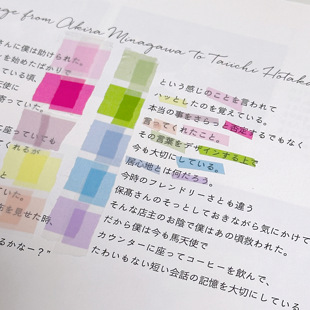 ge from Akira Minagawa to Taiichi Hotaka
という感じのことを言われて
ハッとしたのを覚えている。
本当の事をさらっと否定するでもなく
言ってくれたこと。
その言葉をデザインする上で
今も大切にしている。
居心地とは何だろう。
今時のフレンドリーさとも違う
保髙さんのそっとしておきながら気にかけて
そんな店主のお陰で僕はあの頃救われた。
だから僕は今も馬天使で
カウンターに座ってコーヒーを飲んで、
たわいもない短い会話の記憶を大切にしている
さんに僕は助けられた。
ィを始めたばかりで
ている頃、
天使に
に座っていても
くれるが
を見せた時、
るかなー?"